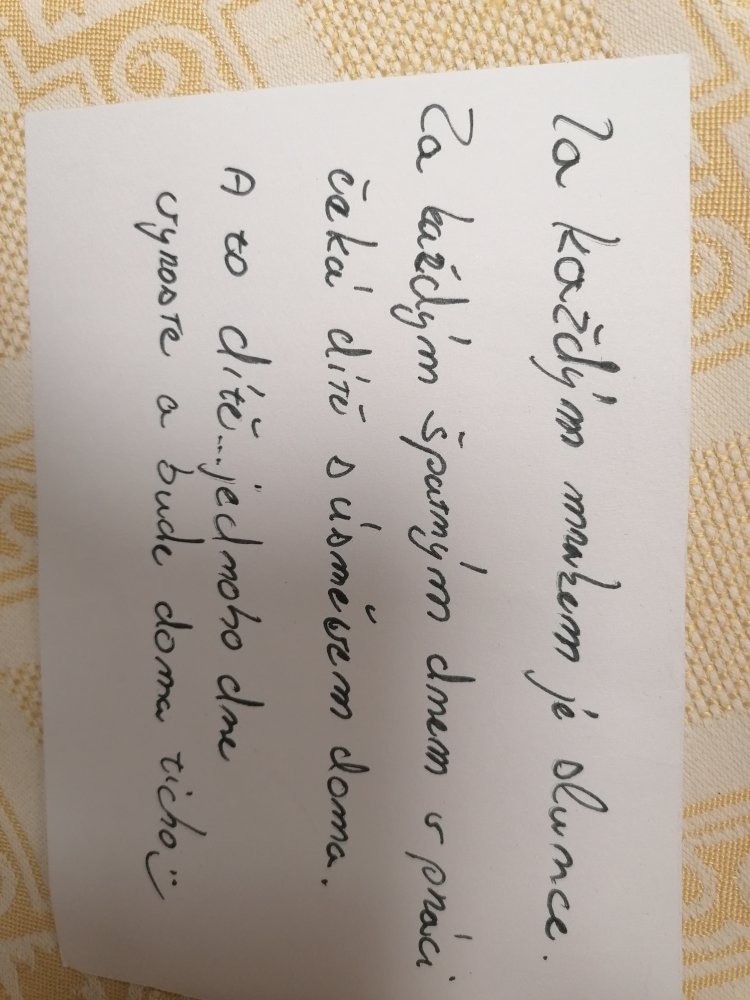 Za každým mrakem je slunce.
Za každým špatným dnem v práci
čeká dítě s úsměvem doma.
A to dítě... jednoho dne
vyroste a bude doma ticho :)